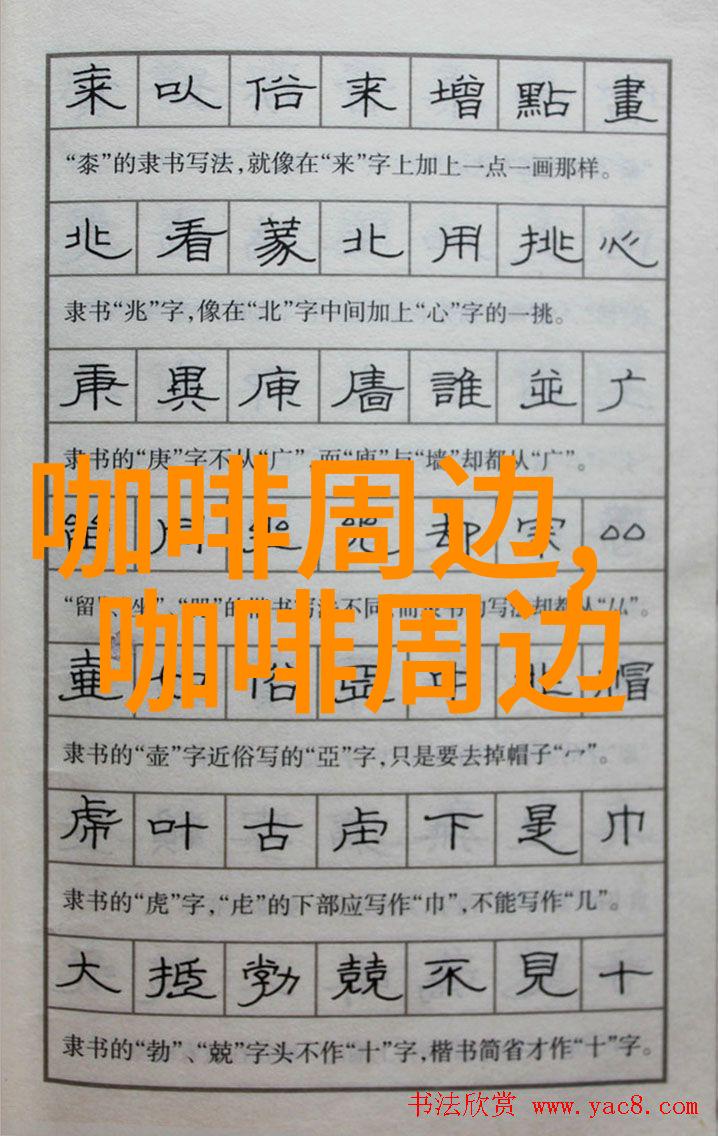 来 以 俗 来 增 點 畫
“桼”的隶书写法，就像在“来”字上加上一点一画那样。
兆 看 蒙 北 用 挑 心
隶书“兆”字，像在“北”字中间加上“心”字的一挑。
庚 異 庾 廧 誰 並 广
隶书的“庚”字不从“广”，而“庾”与“墙”却都从“广”。
咖啡周边，
却
不同
却都从“厸”。
咖啡周边
壺 俗 亞 帽
隶书的“壶”字近俗写的“亞”字，只是要去掉帽子“冖”。
虎 叶 古 虍 下 是 巾
隶书的“虎”字，“虍”的下部应写作“巾”，不能写作“几”。
大 抵 勃 兢 不 見 十
隶书的“勃”、“兢”字头不作“十”字，楷书简省才作“十”字。
书法欣赏 www.yac8.com